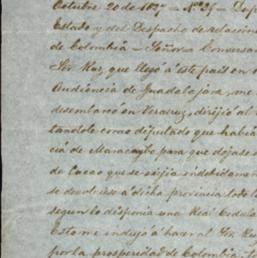 Octubre 20 de 1827 — Nº 25 — Desp
Estado y del Despacho de relacione
de Colombia — Señor — Conversa
Sor Ruz, que llegó á éste país en
Audiencia de Guadalajara, me
desembarcó en Veracruz, dirijió al
tandole como diputado que habia
cia de Maracaybo para que dejase
de Cacao que se exijia indebidam
se devolviese á dicha provincia todo
segun lo disponia una Real Cedula
Esto me indujo á har al Sor Ruz
por la prosperidad de Colombia